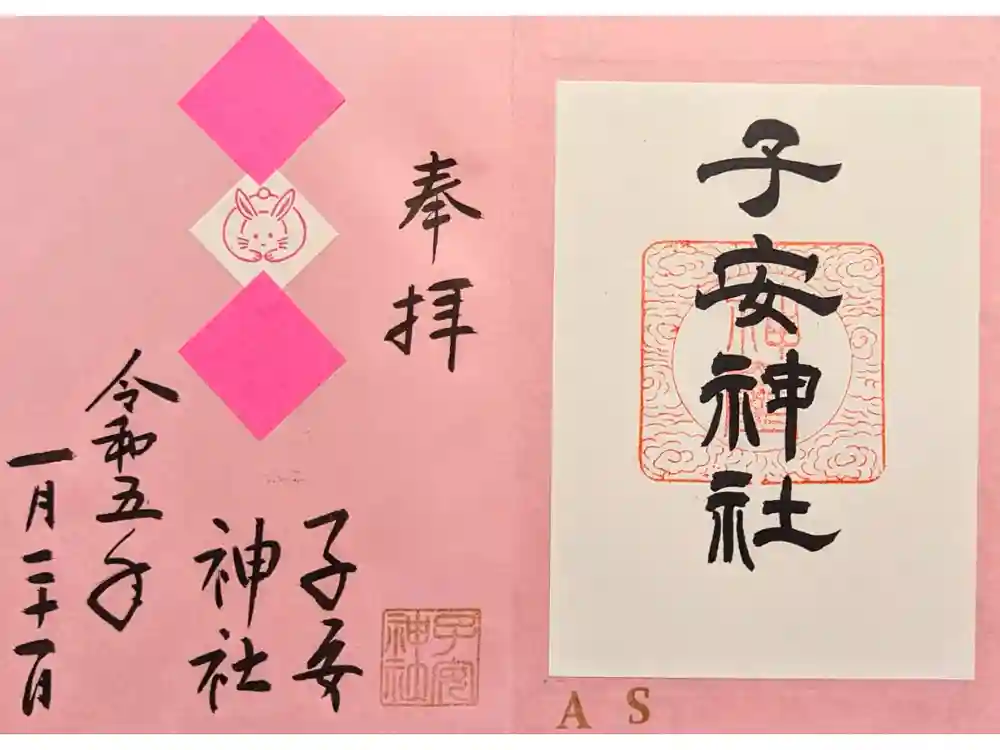 子安神社
A S
奉拝
子安
神社
子安
神社
令和五年
一月二十一日